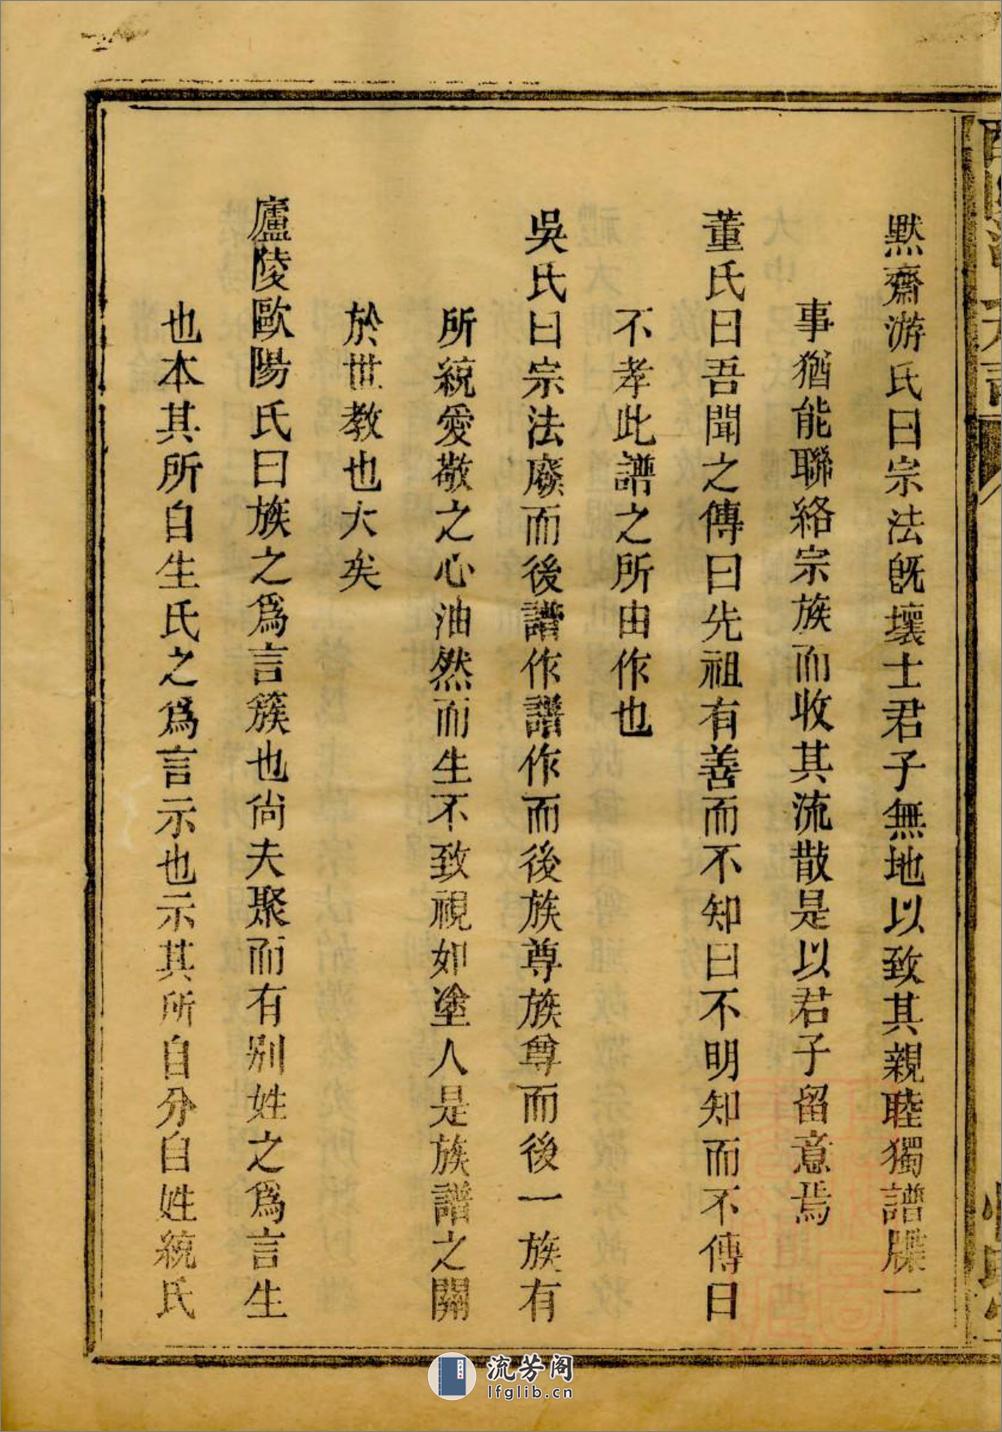 默齋游氏曰宗法旣壞士君子無地以致其親睦獨譜牒一
事猶能聯絡宗族而收其流散是以君子留意焉
董氏曰吾聞之傳曰先祖有善而不知曰不明知而不傳曰
不孝此譜之所由作也
吳氏曰宗法廢而後譜作譜作而後族尊族尊而後一族有
所統愛敬之心油然而生不致視如塗人是族譜之關
於世教也大矣
廬陵歐陽氏曰族之爲言簇也尚夫聚而有别姓之爲言生
也本其所自生氏之爲言示也示其所自分自姓統氏
流芳阁
lfglib.cn